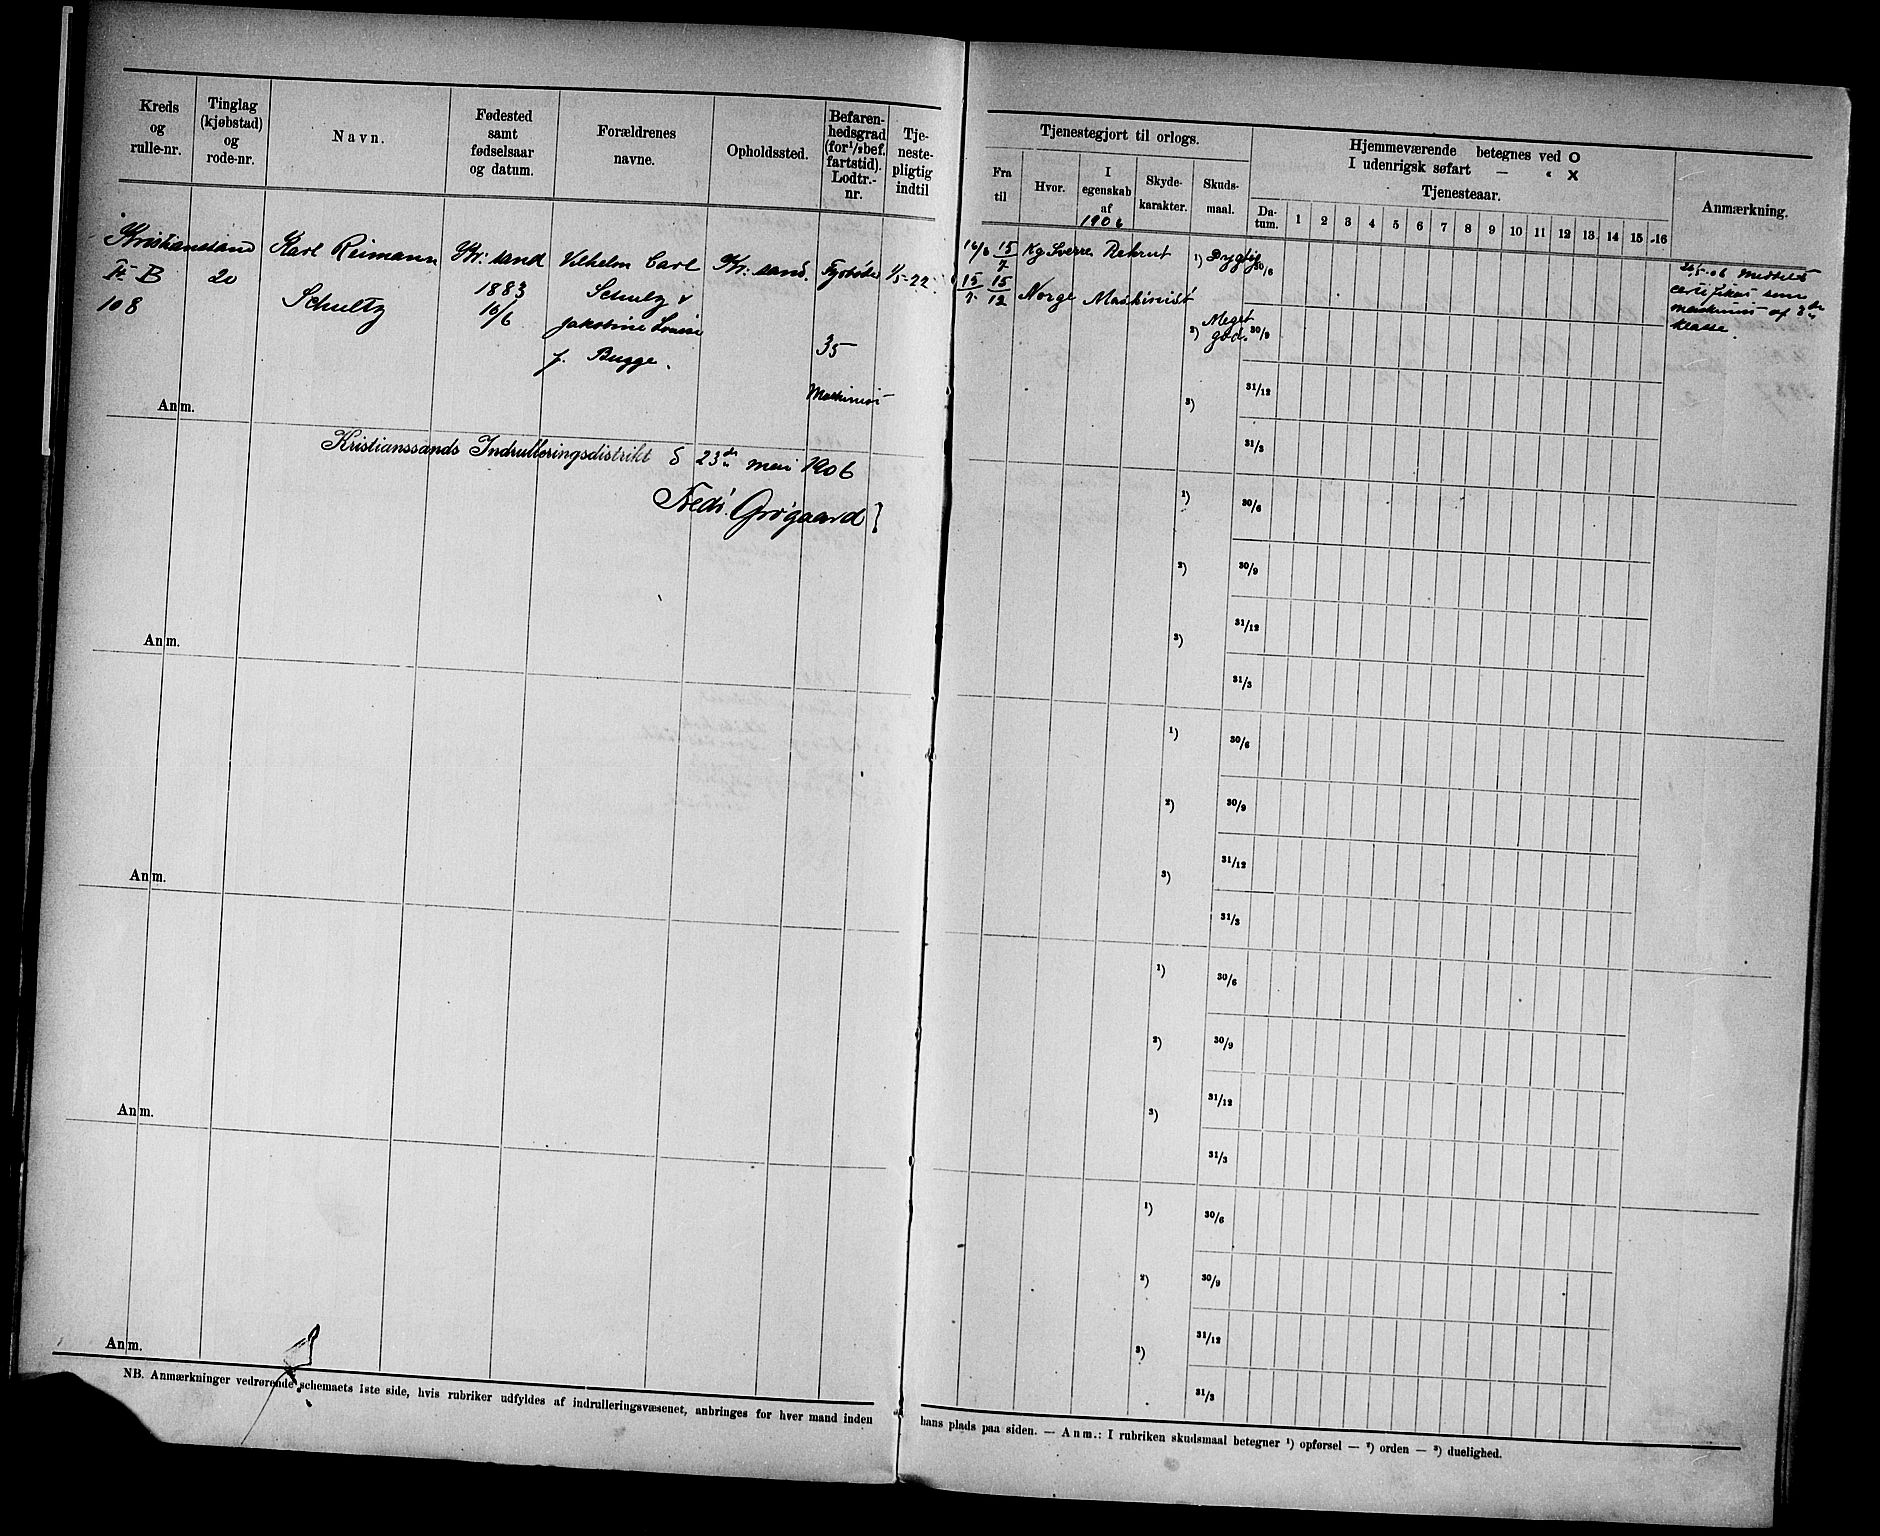 Kreds og rulle-nr.
Tinglag (kjøbstad) og rode-nr.
Navn.
Fødested samt fødselsaar og datum.
Forældrenes navne.
Opholdssted.
Befaren-hedsgrad (for 1/2 bef. fartstid). Lodtr.-nr.
Tje-neste-pligtig indtil
Tjenestegjort til orlogs.
Fra til
Hvor.
I egenskab af
Skyde-karakter.
Skuds-maal.
Hjemmeværende betegnes ved O
I udenrigsk søfart — " X
Tjenesteaar.
Da-tum. 1 2 3 4 5 6 7 8 9 10 11 12 13 14 15 16
Anmærkning.
Kristianssand
II B
108
20
Karl Reimann
Schultz
Kr:sand
1883
16/6
Vilhelm Carl
Schulz &
Jakobine Louise
f. Bugge.
Kr:sand.
Fyrbøder
35
Maskinist
1/5-22.
1906
16/6 15/7 Kg Sverre Rekrut
15/7 15/12 Norge Maskinist
1) Dygtig
2) Meget god.
3)
30/6
30/9
31/12
31/3
26/5-06 Meddelt
certifikat som
maskinist af 3die
klasse.
Anm.
Kristianssands Indrulleringsdistrikt d 23de mai 1906
Fredr. Grøgaard
1)
2)
3)
30/6
30/9
31/12
31/3
Anm.
1)
2)
3)
30/6
30/9
31/12
31/3
Anm.
1)
2)
3)
30/6
30/9
31/12
31/3
Anm.
1)
2)
3)
30/6
30/9
31/12
31/3
Anm.
NB. Anmærkninger vedrørende schemaets 1ste side, hvis rubriker udfyldes af indrulleringsvæsenet, anbringes for hver mand inden
hans plads paa siden. — Anm.: I rubriken skudsmaal betegner 1) opførsel — 2) orden — 3) duelighed.